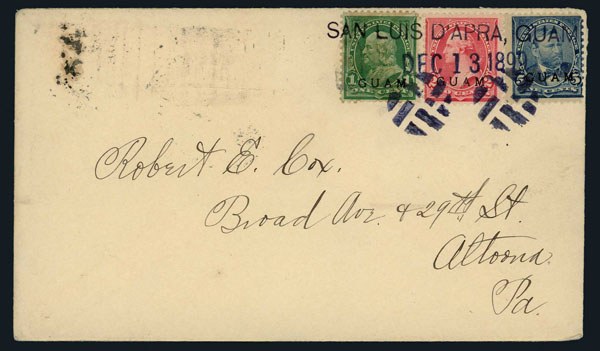 SAN LUIS D'APRA, GUAM
DEC 13 1899
1 GUAM GUAM GUAM 5
Robert E. Cox.
Broad Ave. & 29th St.
Altoona
Pa.